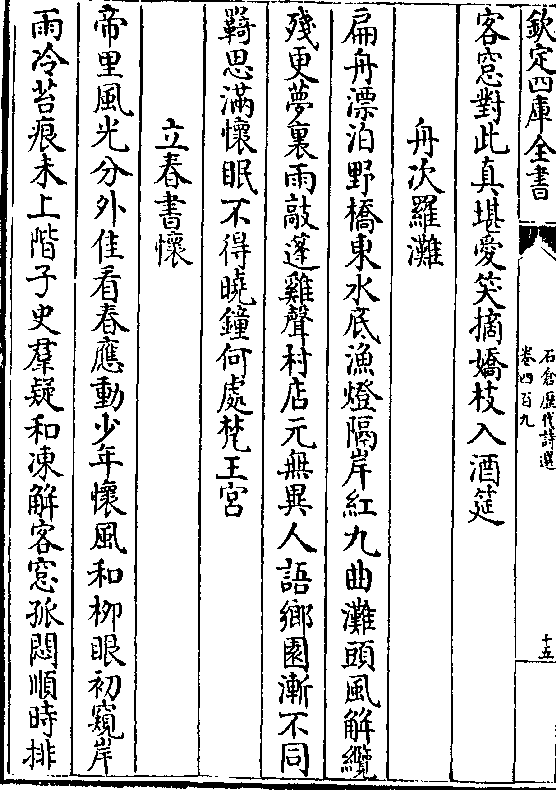 欽定四庫全書
石倉歷代詩選
卷四百九
十五
客窓對此真堪愛笑摘嬌枝入酒筵
舟次羅灘
扁舟漂泊野橋東水底漁燈隔岸紅九曲灘頭風解纜
殘更夢裏雨敲蓬雞聲村店元無異人語鄉園漸不同
羇思滿懷眠不得曉鐘何處梵王宮
立春書懷
帝里風光分外佳看春應動少年懷風和柳眼初窺岸
雨冷苔痕未上階子史羣疑和凍解客窓孤悶順時排